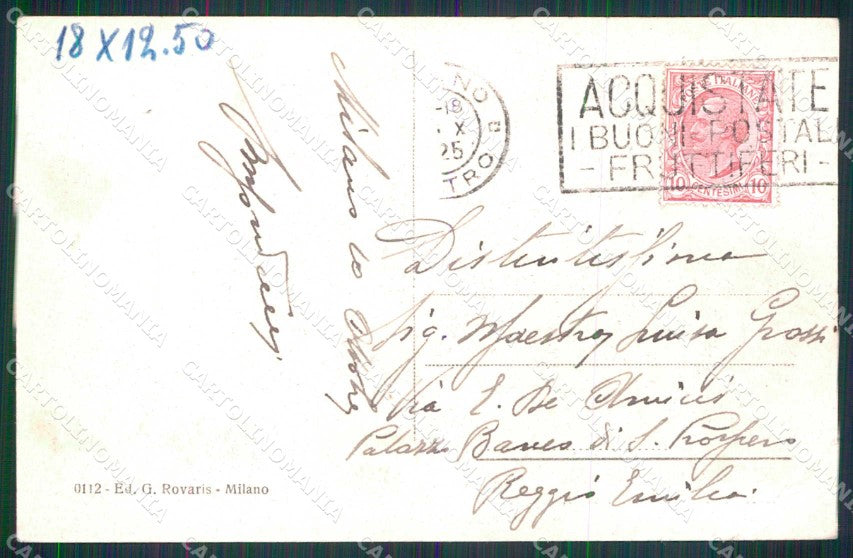 18 X 12.50
Milano 10 Ottobre
NO
-18
X
25
TRO
ACQUISTATE
I BUONI POSTALI
- FRUTTIFERI -
POSTE ITALIANE
10 CENTESIMI 10
Distintissima
Sig. Maestra Luisa Grossi
Via E. De Amicis
Palazzo Banco di S. Prospero
Reggio Emilia
0112 - Ed. G. Rovaris - Milano
CARTOLINOMANIA